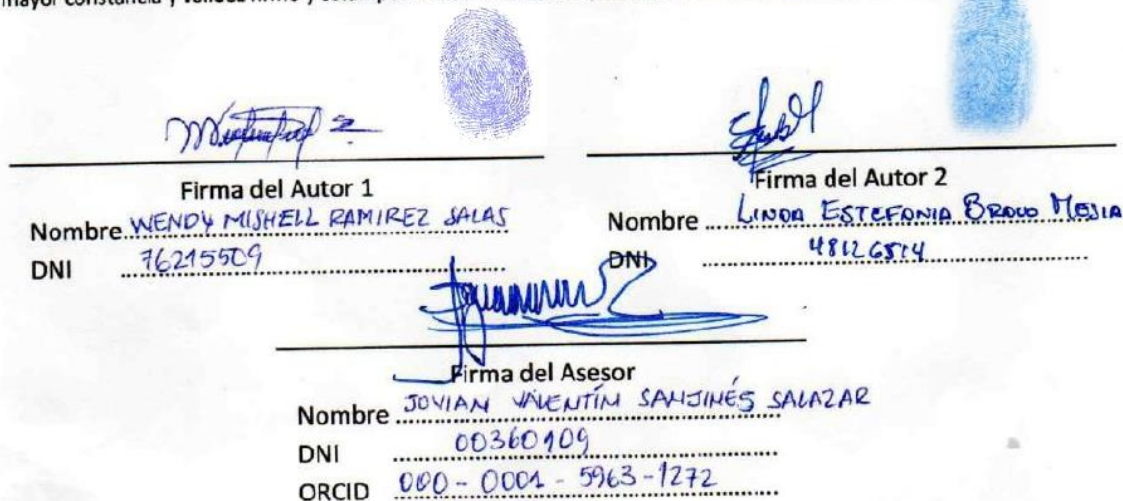 mayor constancia y validez firmo y
Firma del Autor 1
Nombre WENDY MISHELL RAMIREZ SALAS
DNI 76215509
Firma del Autor 2
Nombre LINDA ESTEFANIA BRAVO MEJIA
DNI 48126514
Firma del Asesor
Nombre JOVIAN VALENTÍN SANJINÉS SALAZAR
DNI 00360109
ORCID 000-0001-5963-1272